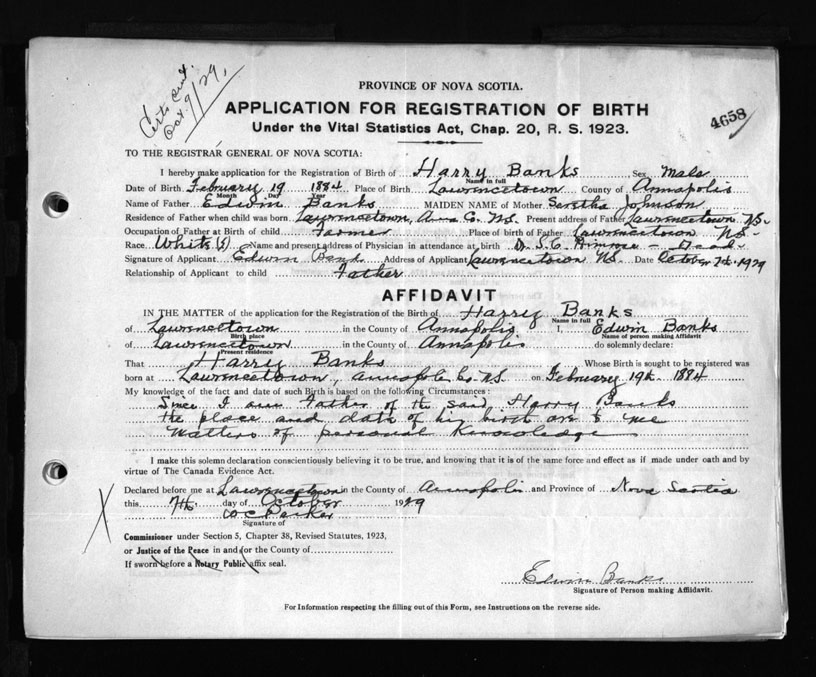 Certs sent.
Oct. 9/29,
PROVINCE OF NOVA SCOTIA.
APPLICATION FOR REGISTRATION OF BIRTH
4658
Under the Vital Statistics Act, Chap. 20, R. S. 1923.
TO THE REGISTRAR GENERAL OF NOVA SCOTIA:
I hereby make application for the Registration of Birth of Harry Banks Sex Male
Name in full
Date of Birth February 19 1884 Place of Birth Lawrencetown County of Annapolis
Month Day Year
Name of Father Edwin Banks MAIDEN NAME of Mother Johnson
Residence of Father when child was born Lawrencetown, Ann Co. NS. Present address of Father Lawrencetown NS.
Occupation of Father at Birth of child Farmer Place of birth of Father Lawrencetown NS.
Race White Name and present address of Physician in attendance at birth Dr. S.C. Primrose - Dead
Signature of Applicant Edwin Banks Address of Applicant Lawrencetown NS. Date October 7th 1929
Relationship of Applicant to child Father
AFFIDAVIT
IN THE MATTER of the application for the Registration of the Birth of Harry Banks
Name in full
of Lawrencetown in the County of Annapolis I Edwin Banks
Birth place Name of person making Affidavit
of Lawrencetown in the County of Annapolis do solemnly declare:
Present residence
That Harry Banks Whose Birth is sought to be registered was
born at Lawrencetown, Annapolis Co. NS. on February 19th 1884
My knowledge of the fact and date of such Birth is based on the following Circumstances:
Since I am Father of the said Harry Banks
the place and date of his birth are to me
matters of personal Knowledge
I make this solemn declaration conscientiously believing it to be true, and knowing that it is of the same force and effect as if made under oath and by
virtue of The Canada Evidence Act.
Declared before me at Lawrencetown in the County of Annapolis and Province of Nova Scotia
this 7th day of October 1929
Parker
Signature of
Commissioner under Section 5, Chapter 38, Revised Statutes, 1923,
or Justice of the Peace in and for the County of
If sworn before a Notary Public affix seal.
Edwin Banks
Signature of Person making Affidavit.
For Information respecting the filling out of this Form, see Instructions on the reverse side.